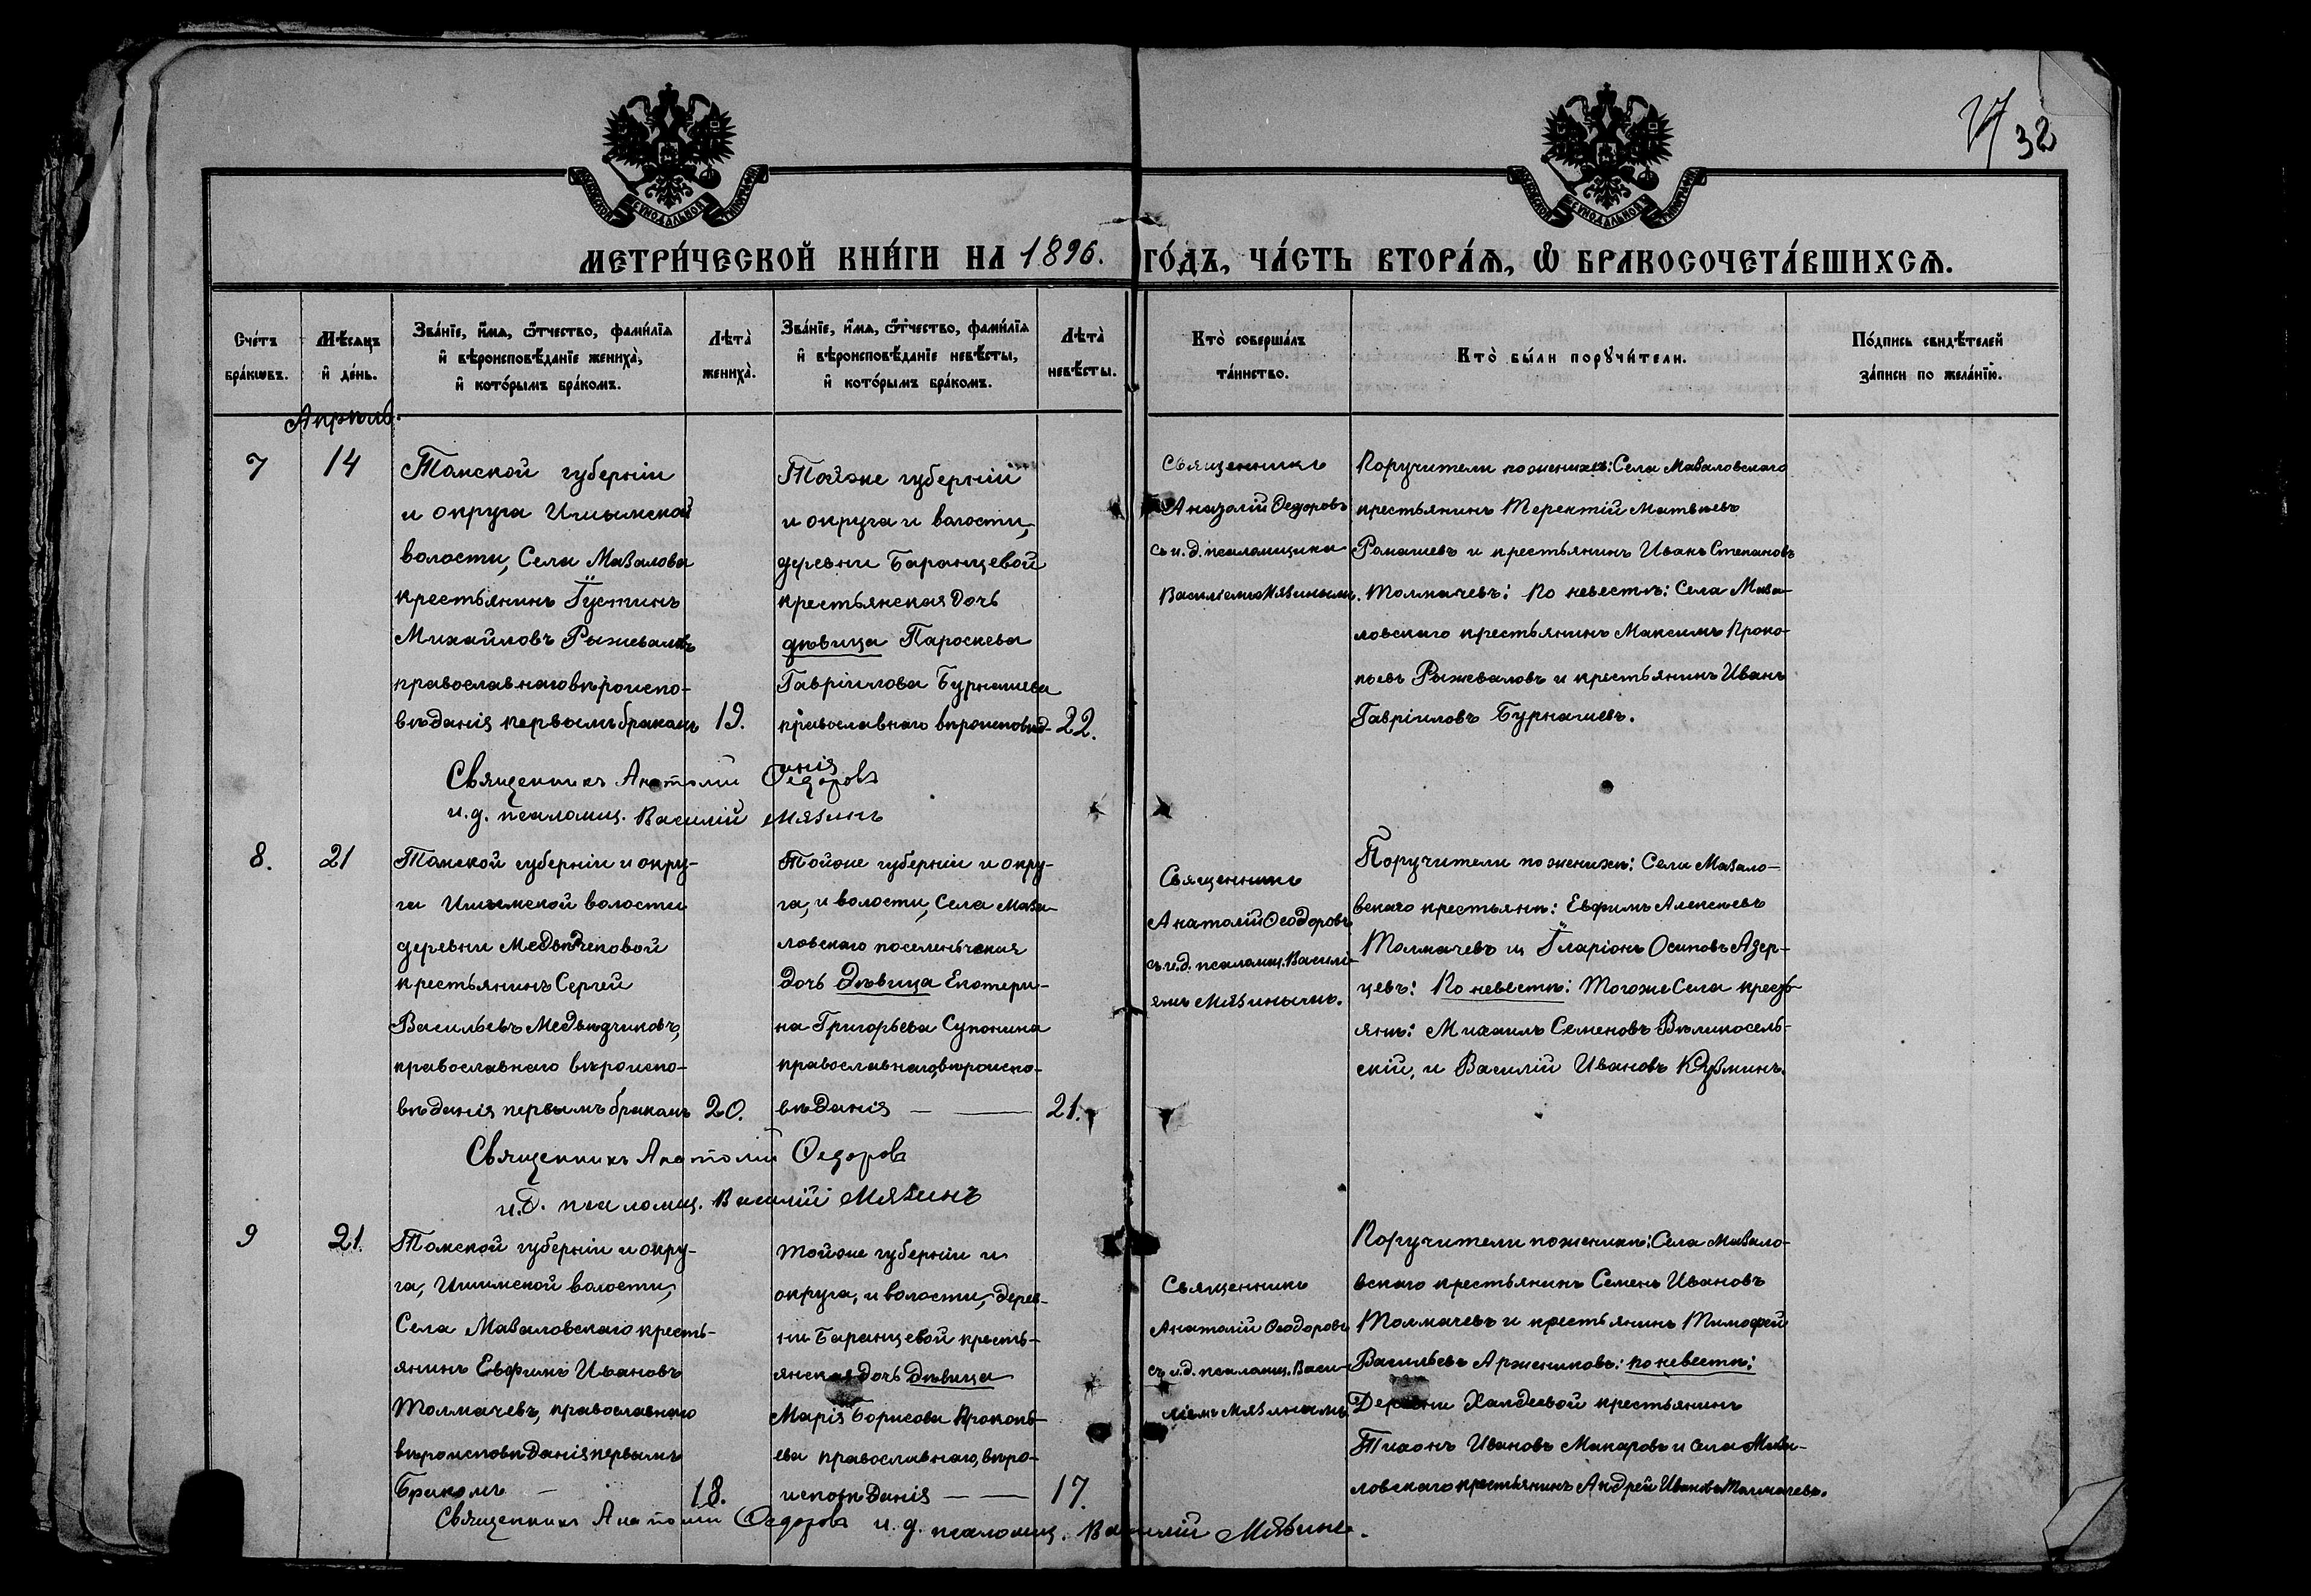 32
МОСКОВСКОЙ СѴНОДАЛЬНОЙ ТИПОГРАФІИ
МОСКОВСКОЙ СѴНОДАЛЬНОЙ ТИПОГРАФІИ
МЕТРИ́ЧЕСКОЙ КНИ́ГИ НА 1896. ГО́ДЪ, ЧА́СТЬ ВТОРА́Ѧ, Ѡ БРАКОСОЧЕТА́ВШИХСѦ.
Сче́тъ бра́кѡвъ.
Мѣ́сѧцъ и҆ де́нь.
Зва́нїе, и҆́мѧ, ѻ҆́тчество, фами́лїѧ
и҆ вѣроисповѣ́данїе жениха̀,
и҆ кото́рымъ бра́комъ.
Лѣта̀ жениха̀.
Зва́нїе, и҆́мѧ, ѻ҆́тчество, фами́лїѧ
и҆ вѣроисповѣ́данїе невѣ́сты,
и҆ кото́рымъ бра́комъ.
Лѣта̀ невѣ́сты.
Кто̀ соверша́лъ
та́инство.
Кто̀ бы́ли порꙋчи́тели.
По́дпись свидѣ́телей
за́писи по жела́нїю.
Апрѣль.
7
14
Томской губерніи
и округа Ишимской
волости, Села Мазалова
крестьянинъ Густинъ
Михайловъ Рыжеваловъ
православнаго вѣроиспо-
вѣданія первымъ бракомъ
19.
Тойже губерніи
и округа и волости,
деревни Баранцевой
крестьянская дочь
дѣвица Пароскева
Гавріилова Бурнашева
православнаго вѣроисповѣд-
анія
22.
Священникъ
Анатолій Ѳедоровъ
съ и. д. псаломщика
Василіемъ Мязинымъ.
Поручители по женихѣ: Села Мазаловскаго
крестьянинъ Терентій Матвѣевъ
Ромашевъ и крестьянинъ Иванъ Степановъ
Толмачевъ: По невестѣ: Села Маза-
ловскаго крестьянинъ Максимъ Проко-
пьевъ Рыжеваловъ и крестьянинъ Иванъ
Гавріиловъ Бурнашевъ.
Священникъ Анатолій Ѳедоровъ
и. д. псаломщ. Василій Мязинъ
8.
21
Томской губерніи и окру-
га Ишимской волости
деревни Медвѣдчиковой
крестьянинъ Сергей
Васильевъ Медвѣдчиковъ,
православнаго вѣроиспо-
вѣданія первымъ бракомъ
20.
Тойже губерніи и окру-
га, и волости, Села Маза-
ловскаго поселенческая
дочь Дѣвица Екатери-
на Григорьева Супонина
православнаго, вѣроиспо-
вѣданія — —
21.
Священникъ
Анатолій Ѳеодоровъ
съ и.д. псаломщ. Василі-
емъ Мязинымъ.
Поручители по женихѣ: Села Мазало-
вскаго крестьяне: Евфимъ Алексѣевъ
Толмачевъ и Іларіонъ Осиповъ Азер-
цевъ: По невестѣ: Тогоже Села кресть-
яне: Михаилъ Семеновъ Вѣликосель-
скій, и Василій Ивановъ Кузминъ.
Священникъ Анатолій Ѳедоровъ
и. д. псаломщ. Василій Мязинъ
9
21.
Томской губерніи и окру-
га, Ишимской волости,
Села Мазаловскаго кресть-
янинъ Евфимъ Ивановъ
Толмачевъ, православнаго
вѣроисповѣданія первымъ
Бракомъ —
18.
тойже губерніи и
округа, и волости, дерев-
ни Баранцевой кресть-
янская дочь Дѣвица
Марія Борисова Прокопь-
ева православнаго, вѣро-
исповѣданія — —
17.
Священникъ
Анатолій Ѳеодоровъ
съ и.д. псаломщ. Васи-
ліемъ Мязинымъ
Поручители по женихѣ: Села Мазало-
вскаго крестьянинъ Семенъ Ивановъ
Толмачевъ и крестьянинъ Тимофей
Васильевъ Аржениковъ: по невестѣ:
Деревни Халдеевой крестьянинъ
Тихонъ Ивановъ Макаровъ и села Маза-
ловскаго крестьянинъ Андрей Ивановъ Толмачевъ.
Священникъ Анатолій Ѳедоровъ и. д. псаломщ. Василій Мязинъ.